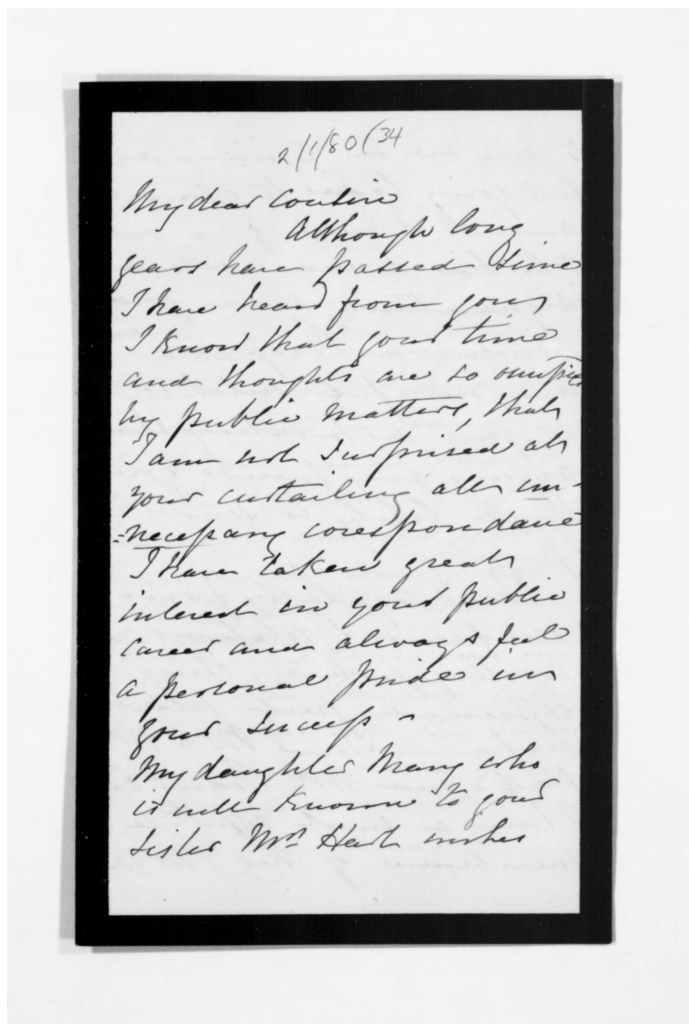 2/1/80(34
My dear Cousin
Although long
years have passed since
I have heard from you,
I know that your time
and thoughts are so occupied
by public matters, that
I am not surprised at
your curtailing all un-
=necessary corespondance
I have taken great
interest in your public
career and always feel
a personal pride in
your success -
My daughter Mary who
is well known to your
sister Mrs Hart wishes